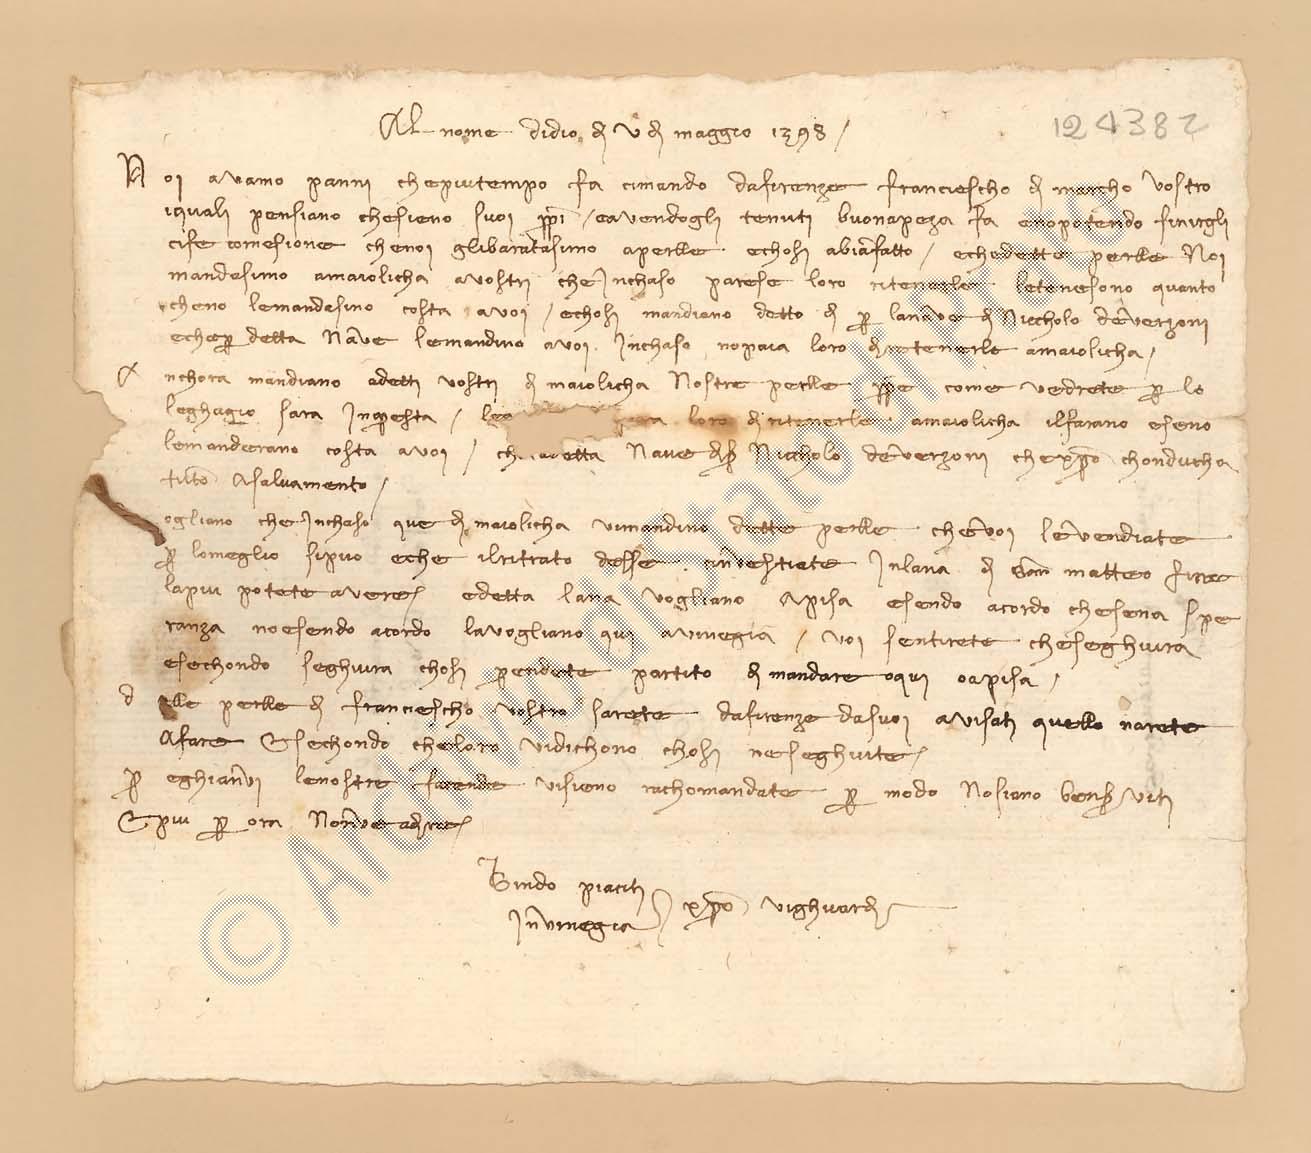 Al nome didio di V di maggio 1398 /
124382
Noi avamo panni chepiutempo fa cimando dafirenze franciescho di marcho vostro
iquali pensiano chesieno suoi ppi / eavendogli tenuti buonapeza fa enopotendo finirgli
cife comesione chenoi glibaratasimo aperlle echosi abiafatto / echedette perlle Noi
mandesimo amaiolicha avostri cheInchaso parese loro ritenerle letenesono quanto
cheno lemandasino costa avoi / echosi mandiano detto di p lanave di Niccholo deverzoni
echep detta Nave lemandino avoi Inchaso nopaia loro diretenerle amaiolicha /
Anchora mandiano adetti vostri di maiolicha Nostre perlle ppe come vedrete p lo
leghagio sara Inquesta / loro diritenerle amaiolicha ilfarano eseno
lemanderano costa avoi / detta Nave Niccholo deverzoni chexpo chonducha
tutto Asalvamento /
ogliano cheInchaso que di maiolicha vimandino dette perlle chevoi levendiate
p lomeglio sipuo eche ilritratto desse investiate Inlana di San matteo fine
lapiu potete avere edetta lana vogliano Apisa esendo acordo chesena spe
ranza noesendo acordo lavogliano qui avinegia / voi sentirete cheseghuira
esechondo seghuira chosi prendete partito di mandare oqui oapisa /
delle perlle di franciescho vostro sarete dafirenze dasuoi avisati quello narete
Afare E sechondo cheloro vidichono chosi neseghuite /
p eghianvi lenostre facende visieno rachomandate p modo Nosiano benserviti
E piu p ora Nonve adire /
Bindo piaciti
Invinegia xpo vighuardi
© Archivio di Stato di Prato